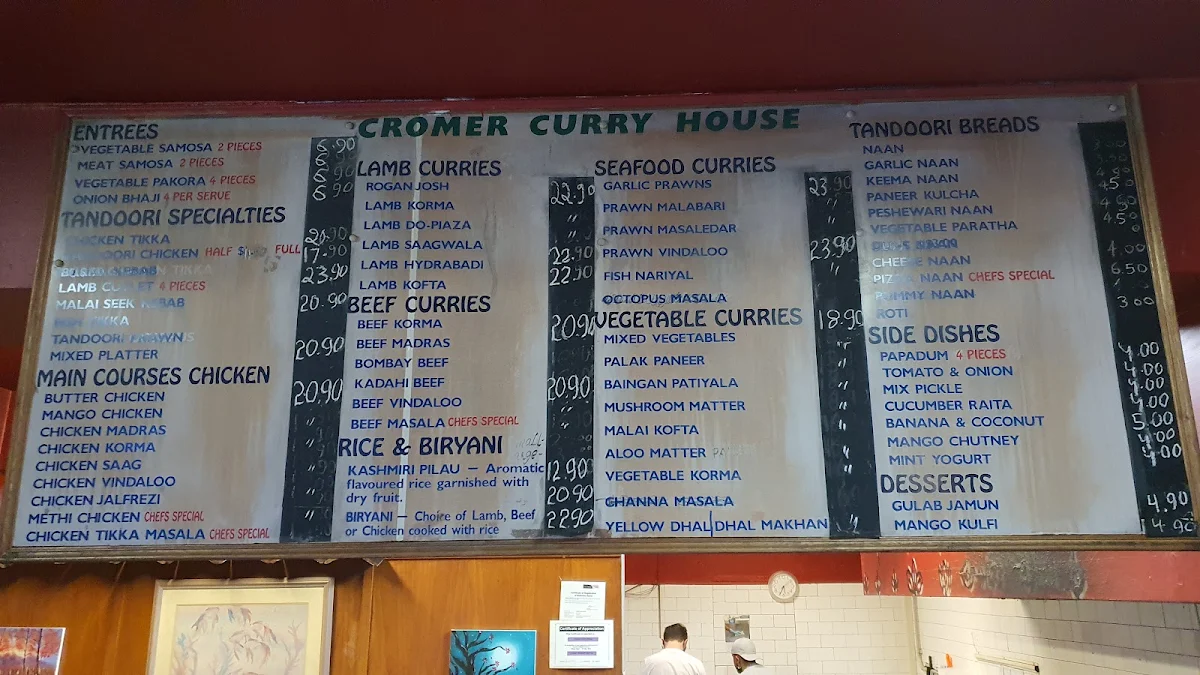 CROMER CURRY HOUSE
ENTREES
VEGETABLE SAMOSA 2 PIECES 6.90
MEAT SAMOSA 2 PIECES 6 90
VEGETABLE PAKORA 4 PIECES 6 90
ONION BHAJI 4 PER SERVE 6 90
TANDOORI SPECIALTIES
CHICKEN TIKKA
TANDOORI CHICKEN HALF FULL
LAMB CUTLET 4 PIECES 23.90
MALAI SEEK KEBAB 20.90
TIKKA
TANDOORI PRAWNS
MIXED PLATTER 20.90
MAIN COURSES CHICKEN
BUTTER CHICKEN 20.90
MANGO CHICKEN "
CHICKEN MADRAS "
CHICKEN KORMA "
CHICKEN SAAG "
CHICKEN VINDALOO "
CHICKEN JALFREZI "
METHI CHICKEN CHEFS SPECIAL "
CHICKEN TIKKA MASALA CHEFS SPECIAL "
LAMB CURRIES
ROGAN JOSH 22.90
LAMB KORMA "
LAMB DO-PIAZA "
LAMB SAAGWALA 22.90
LAMB HYDRABADI 22.90
LAMB KOFTA
BEEF CURRIES
BEEF KORMA 20.90
BEEF MADRAS
BOMBAY BEEF
KADAHI BEEF 20.90
BEEF VINDALOO "
BEEF MASALA CHEFS SPECIAL "
RICE & BIRYANI
KASHMIRI PILAU – Aromatic 12.90
flavoured rice garnished with 20.90
dry fruit.
BIRYANI – Choice of Lamb, Beef 22.90
or Chicken cooked with rice
SEAFOOD CURRIES
GARLIC PRAWNS 23.90
PRAWN MALABARI "
PRAWN MASALEDAR "
PRAWN VINDALOO 23.90
FISH NARIYAL "
OCTOPUS MASALA
VEGETABLE CURRIES 18.90
MIXED VEGETABLES "
PALAK PANEER "
BAINGAN PATIYALA "
MUSHROOM MATTER "
MALAI KOFTA "
ALOO MATTER "
VEGETABLE KORMA "
CHANNA MASALA "
YELLOW DHAL/DHAL MAKHAN "
TANDOORI BREADS
NAAN
GARLIC NAAN
KEEMA NAAN
PANEER KULCHA
PESHEWARI NAAN
VEGETABLE PARATHA
CHEESE NAAN 4.00
PIZZA NAAN CHEFS SPECIAL 6.50
PUMMY NAAN
ROTI 3 00
SIDE DISHES
PAPADUM 4 PIECES 4.00
TOMATO & ONION 4.00
MIX PICKLE 4.00
CUCUMBER RAITA 4.00
BANANA & COCONUT 5.00
MANGO CHUTNEY 4.00
MINT YOGURT 4.00
DESSERTS
GULAB JAMUN 4.90
MANGO KULFI 4 90
Certificate of Appreciation